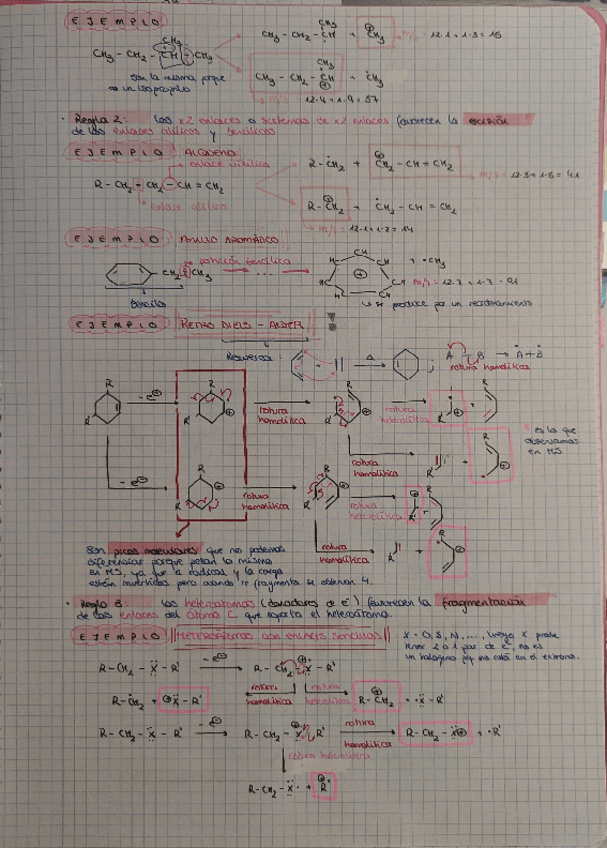 EJEMPLO
CH₃
CH₃ - CH₂ - CH + CH₃ m/z = 12·1 + 1·3 = 15
CH₃
CH₃ - CH₂ - CH - CH₃
CH₃
CH₃ - CH₂ - CH + CH₃
son la misma porque
es un isopropilo
m/z = 12·4 + 1·9 = 57
· Regla 2: Los x2 enlaces o sistemas de x2 enlaces favorecen la escisión
de los enlaces alílicos y bencílicos
EJEMPLO ALQUENO
enlace vinílico
R - CH₂ + CH₂ - CH = CH₂ m/z = 12·3 + 1·5 = 41
R - CH₂ - CH₂ - CH = CH₂
enlace alílico
R - CH₂ + CH₂ - CH = CH₂
m/z = 12·1 + 1·2 = 14
EJEMPLO ANILLO AROMÁTICO
posición bencílica
CH₂ CH₃ ... + ·CH₃
m/z = 12·7 + 1·7 = 91
bencilo
se produce por un reordenamiento
EJEMPLO RETRO DIELS - ALDER
Recuerda: Δ ; A B → A + B
rotura homolítica
R
R'
- e⁻
rotura
homolítica
rotura
heterolítica
es lo que
observamos
en MS
rotura
homolítica
- e⁻
rotura
homolítica
rotura
heterolítica
rotura
homolítica
Son picos moleculares que no podemos
diferenciar porque pesan lo mismo
en MS, ya que el radical y la carga
están invertidos pero cuando se fragmenta se observan 4.
· Regla 3: los heteroátomos (donadores de e⁻) favorecen la fragmentación
de los enlaces del átomo C que soporta el heteroátomo.
EJEMPLO HETEROÁTOMOS CON ENLACES SENCILLOS
X = O, S, N, ..., luego X puede
tener 2 o 1 par de e⁻, no es
un halógeno pq no está en el extremo.
R - CH₂ - X - R' - e⁻ R - CH₂ - X - R'
rotura
homolítica
rotura
heterolítica
R - CH₂ + X - R' R - CH₂ + ·X - R'
R - CH₂ - X - R' - e⁻ R - CH₂ - X - R' rotura
homolítica
R - CH₂ - X + ·R'
rotura heterolítica
R - CH₂ - X· + R'